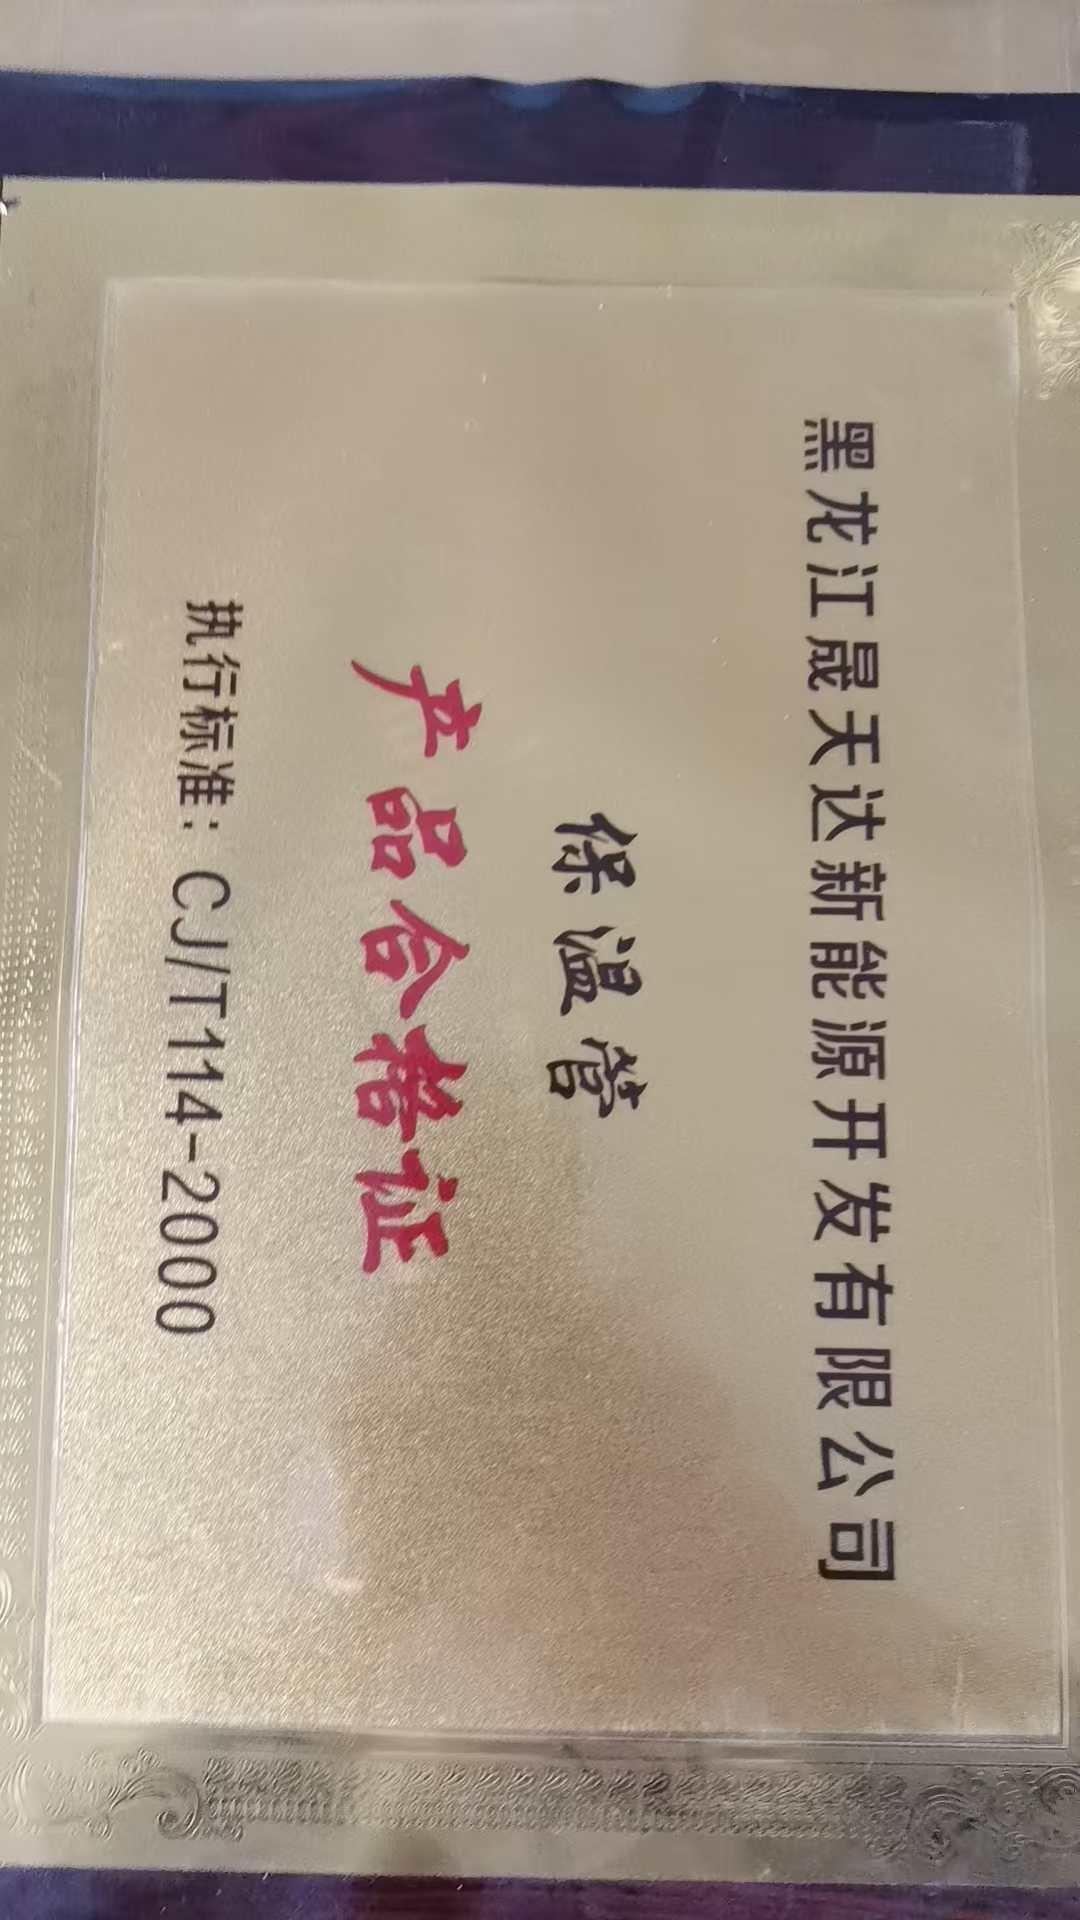 黑龙江晟天达新能源开发有限公司
保温管
产品合格证
执行标准：CJ/T114-2000